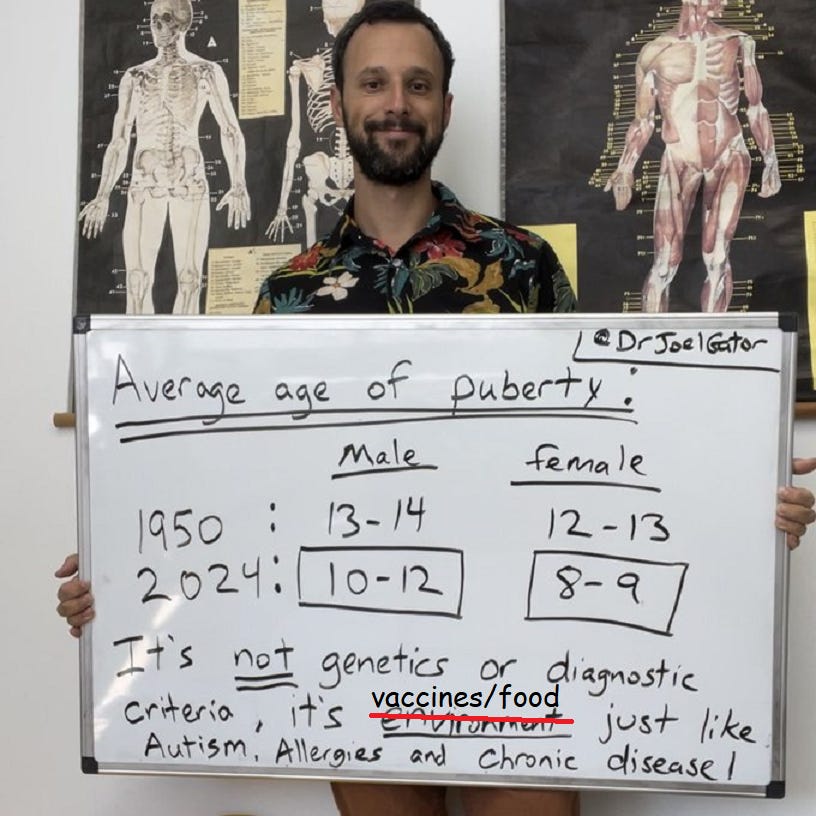 A
@DrJoelGator
Average age of puberty:
Male female
1950 : 13-14 12-13
2024: 10-12 8-9
It's not genetics or diagnostic
vaccines/food
criteria, it's environment just like
Autism, Allergies and chronic disease!